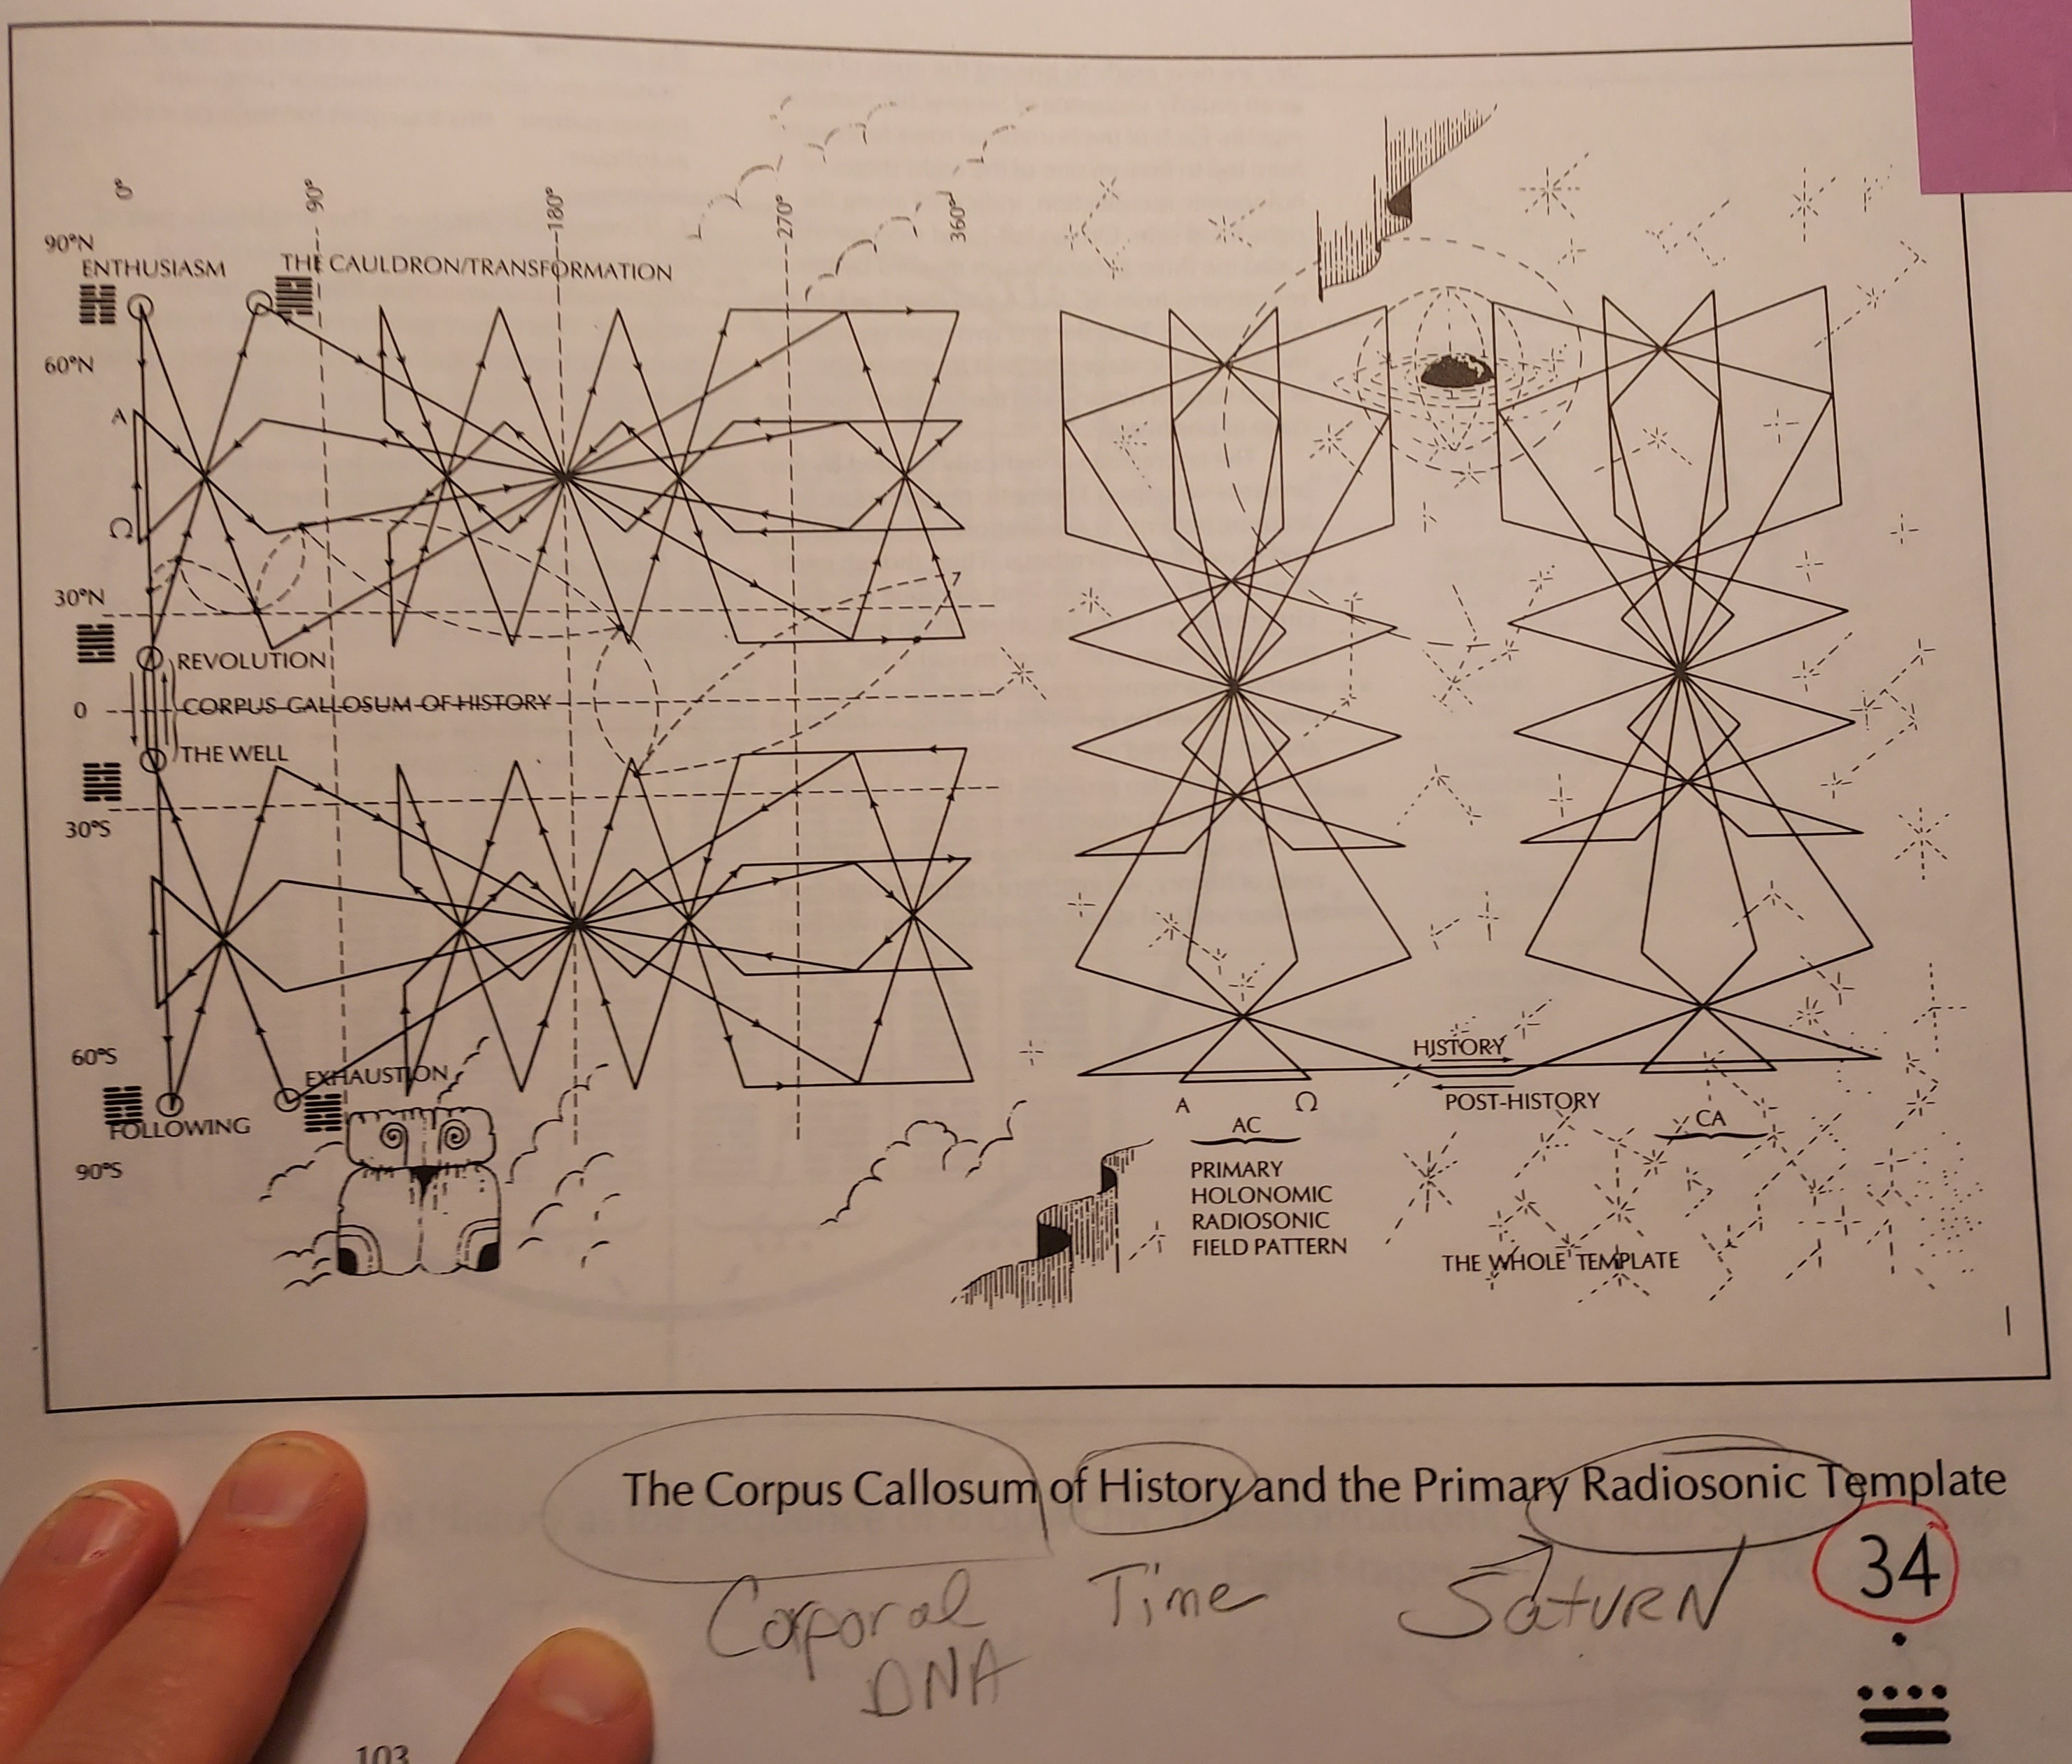 0°
90°
180°
270°
360°
90°N
ENTHUSIASM
THE CAULDRON/TRANSFORMATION
60°N
A
Ω
30°N
REVOLUTION
0
CORPUS CALLOSUM OF HISTORY
THE WELL
30°S
60°S
EXHAUSTION
FOLLOWING
90°S
HISTORY
POST-HISTORY
A Ω
AC
CA
PRIMARY
HOLONOMIC
RADIOSONIC
FIELD PATTERN
THE WHOLE TEMPLATE
The Corpus Callosum of History and the Primary Radiosonic Template
34
Corporal Time Saturn
DNA
103